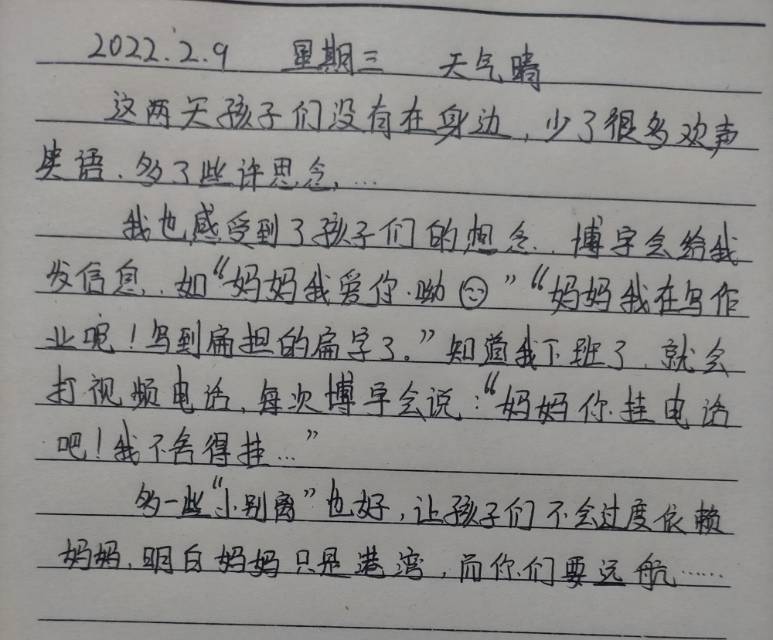 2022.2.9 星期三 天气晴
这两天孩子们没有在身边,少了很多欢声
笑语、多了些许思念,...
我也感受到了孩子们的想念、博宇会给我
发信息、如“妈妈我爱你·呦☺”“妈妈我在写作
业呢!写到扁担的扁字了。”知道我下班了、就会
打视频电话,每次博宇会说:“妈妈你挂电话
吧!我不舍得挂...”
多一些“小别离”也好,让孩子们不会过度依赖
妈妈,明白妈妈只是港湾,而你们要远航……